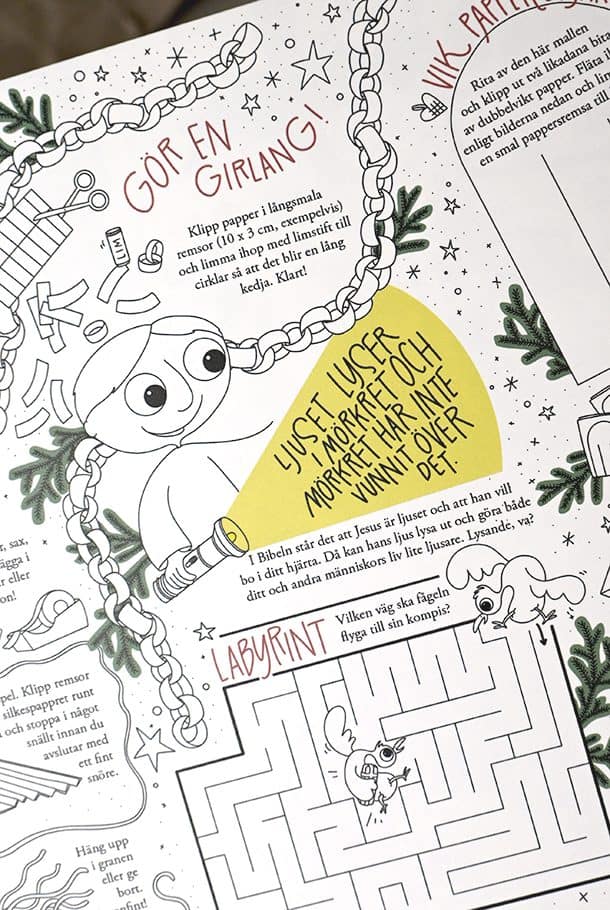 GÖR EN
GIRLANG!
Klipp papper i långsmala
remsor (10 x 3 cm, exempelvis)
och limma ihop med limstift till
cirklar så att det blir en lång
kedja. Klart!
LIM
VIK
Rita av den här mallen
och klipp ut två likadana bita
av dubbelvikt papper. Fläta
enligt bilderna nedan och lim
en smal pappersremsa till
LJUSET LYSER
I MÖRKRET OCH
MÖRKRET HAR INTE
VUNNIT ÖVER
DET.
I Bibeln står det att Jesus är ljuset och att han vill
bo i ditt hjärta. Då kan hans ljus lysa ut och göra både
ditt och andra människors liv lite ljusare. Lysande, va?
LABYRINT
Vilken väg ska fågeln
flyga till sin kompis?
sax,
ägga i
eller
on!
pel. Klipp remsor
silkespappret runt
och stoppa i något
snällt innan du
avslutar med
ett fint
snöre.
Häng upp
i granen
eller ge
bort.
nfint!
X